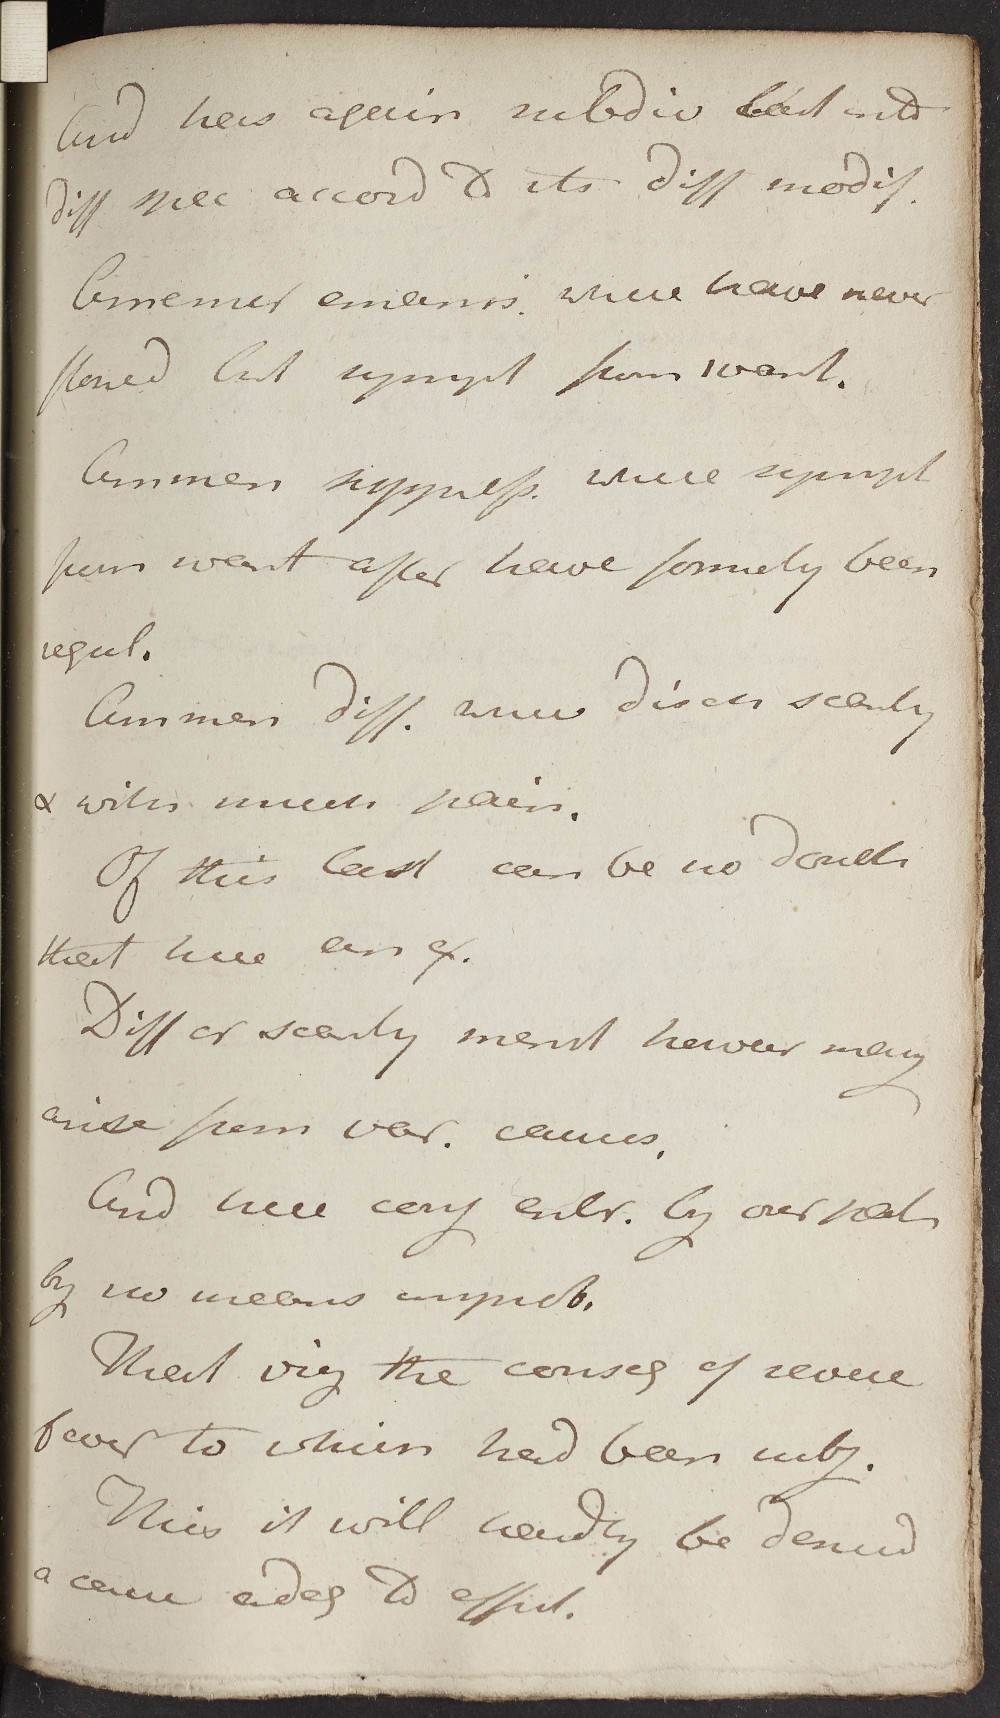 And has again subdiv last into
diff spec accord to its diff modif.
Amenor emans. where have never
flowed but sympt from want.
Ammen suppress. where sympt
from want after have formerly been
regul.
Ammen diff. where disch scanty
& with much pain.
Of this last can be no doubt
that here an ex.
Diff or scanty menst however may
arise from var. causes.
And here conj entr. by our pat
by no means improb.
That viz the conseq of severe
fever to which had been subj.
This it will hardly be denied
a cause adeq to effect.